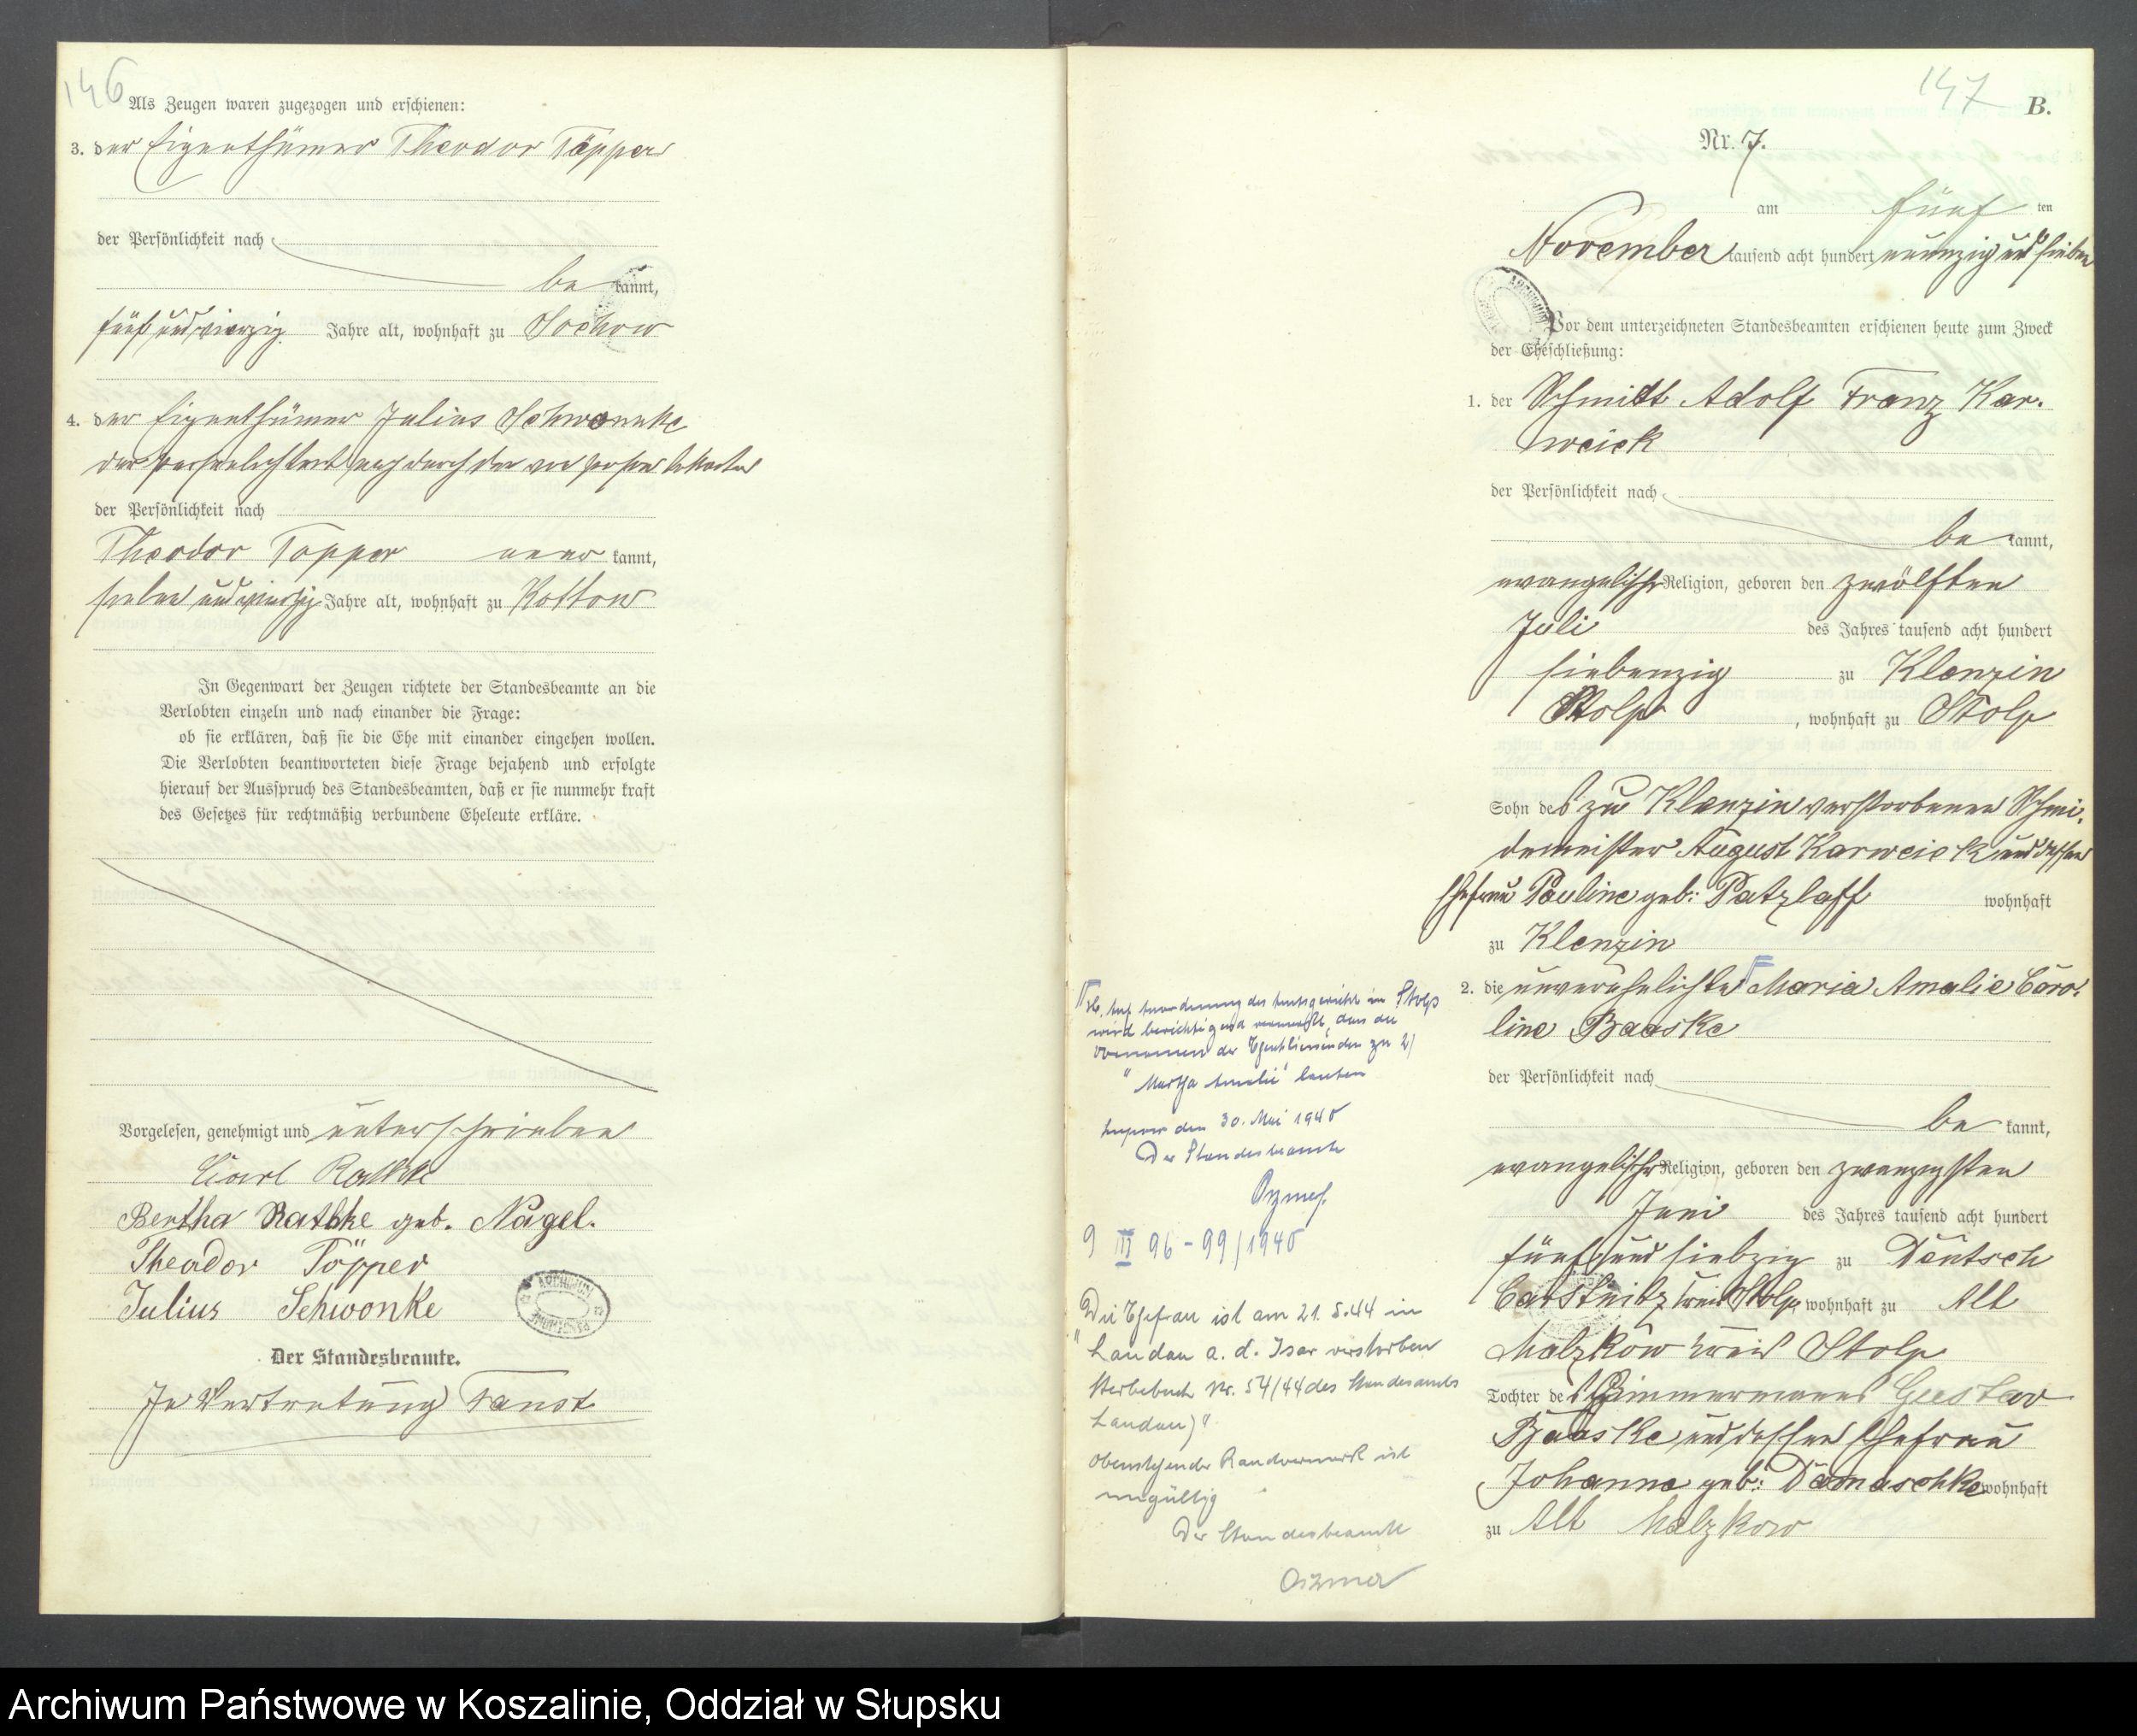 146
Als Zeugen waren zugezogen und erschienen:
3. der Eigenthümer Theodor Töpper
der Persönlichkeit nach
be kannt,
fünf und vierzig Jahre alt, wohnhaft zu Sochow
4. der Eigenthümer Julius Schwonke
der Persönlichkeit nach durch den
der Persönlichkeit nach
Theodor Töpper aner kannt,
sieben und vierzig Jahre alt, wohnhaft zu Rottow
In Gegenwart der Zeugen richtete der Standesbeamte an die
Verlobten einzeln und nach einander die Frage:
ob sie erklären, daß sie die Ehe mit einander eingehen wollen.
Die Verlobten beantworteten diese Frage bejahend und erfolgte
hierauf der Ausspruch des Standesbeamten, daß er sie nunmehr kraft
des Gesetzes für rechtmäßig verbundene Eheleute erkläre.
Vorgelesen, genehmigt und unterschrieben
Carl Rathke
Bertha Rathke geb. Nagel.
Theodor Töpper
Julius Schwonke
Der Standesbeamte.
In Vertretung Faust
147
B.
Nr. 7.
am fünf ten
November tausend acht hundert neunzig und sieben
Vor dem unterzeichneten Standesbeamten erschienen heute zum Zweck
der Eheschließung:
1. der Schmidt Adolf Franz Kar-
weick
der Persönlichkeit nach
be kannt,
evangelischer Religion, geboren den zwölften
Juli des Jahres tausend acht hundert
siebenzig zu Klenzin
Stolp, wohnhaft zu Stolp
Sohn des zu Klenzin verstorbenen Schmi-
demeister August Karweick und dessen
Ehefrau Pauline geb: Patzlaff wohnhaft
zu Klenzin
2. die unverehelichte Maria Amalie Caro-
line Baaske
der Persönlichkeit nach
be kannt,
evangelischer Religion, geboren den zwanzigsten
Juni des Jahres tausend acht hundert
fünf und siebzig zu Deutsch
Carstnitz Kreis Stolp, wohnhaft zu Alt
Malzkow Kreis Stolp
Tochter des Zimmermanns Gustav
Baaske und dessen Ehefrau
Johanne geb: Damaschke wohnhaft
zu Alt Malzkow
Auf Anordnung des Amtsgerichts in Stolp
wird berichtigend vermerkt, dass die
Vornamen der Eheschliessenden zu 2)
"Martha Amalie" lauten
den 30. Mai 1940
Der Standesbeamte
9 III 96-99/1940
Die Ehefrau ist am 21.5.44 in
"Landau a. d. Isar verstorben
Sterbebuch Nr. 54/44 des Standesamts
Landau)"
Obenstehender Randvermerk ist
ungültig
Der Standesbeamte
Archiwum Państwowe w Koszalinie, Oddział w Słupsku